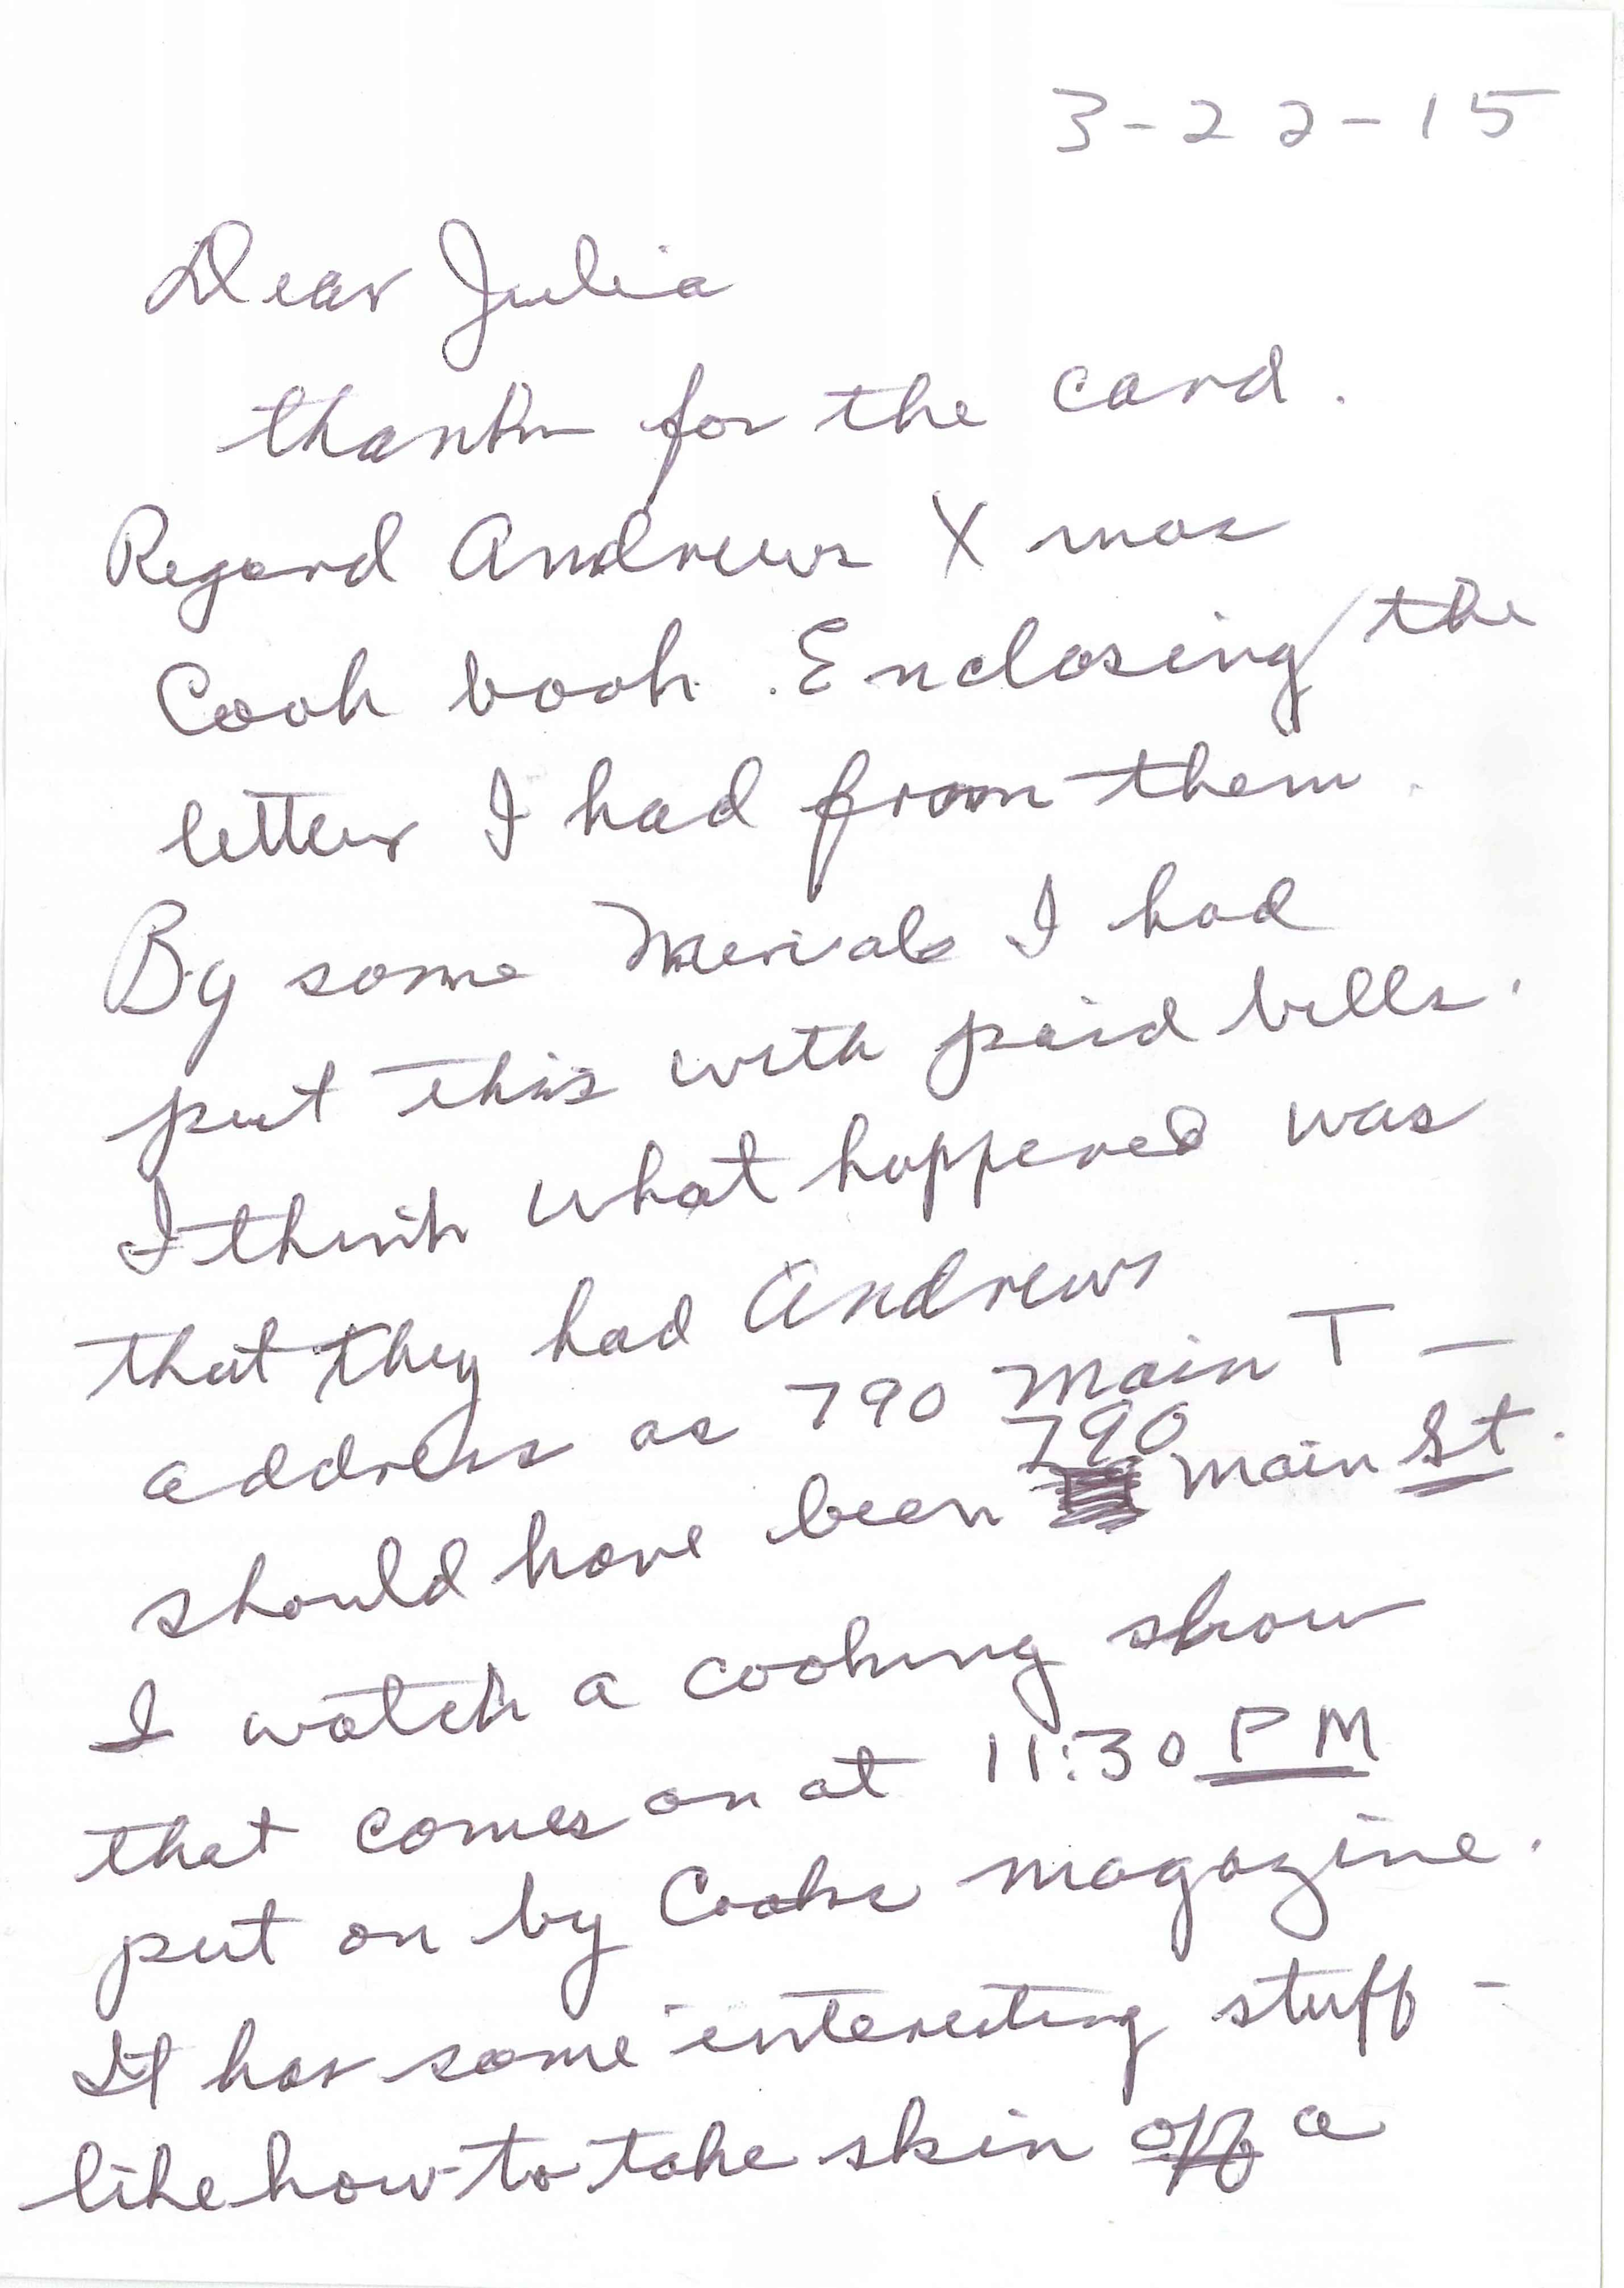 3-22-15
Dear Julia
thanks for the card.
Regard Andrews X mas
Cook book. Enclosing the
letter I had from them.
By some I had
put this with paid bills.
I think what happened was
that they had Andrews
address as 790 Main T —
should have been 790 Main St.
I watch a cooking show
that comes on at 11:30 PM
put on by Cooks magazine.
It has some interesting stuff -
like how to take skin off a